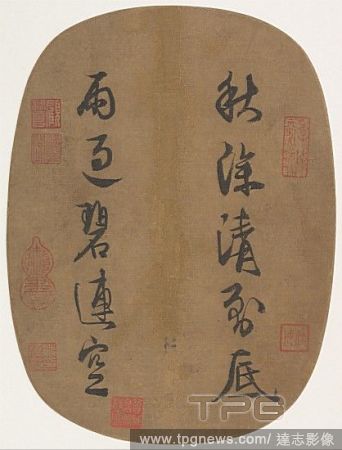 秋深清到底
雨過碧連空
TPG
www.tpgnews.com / 達志影像